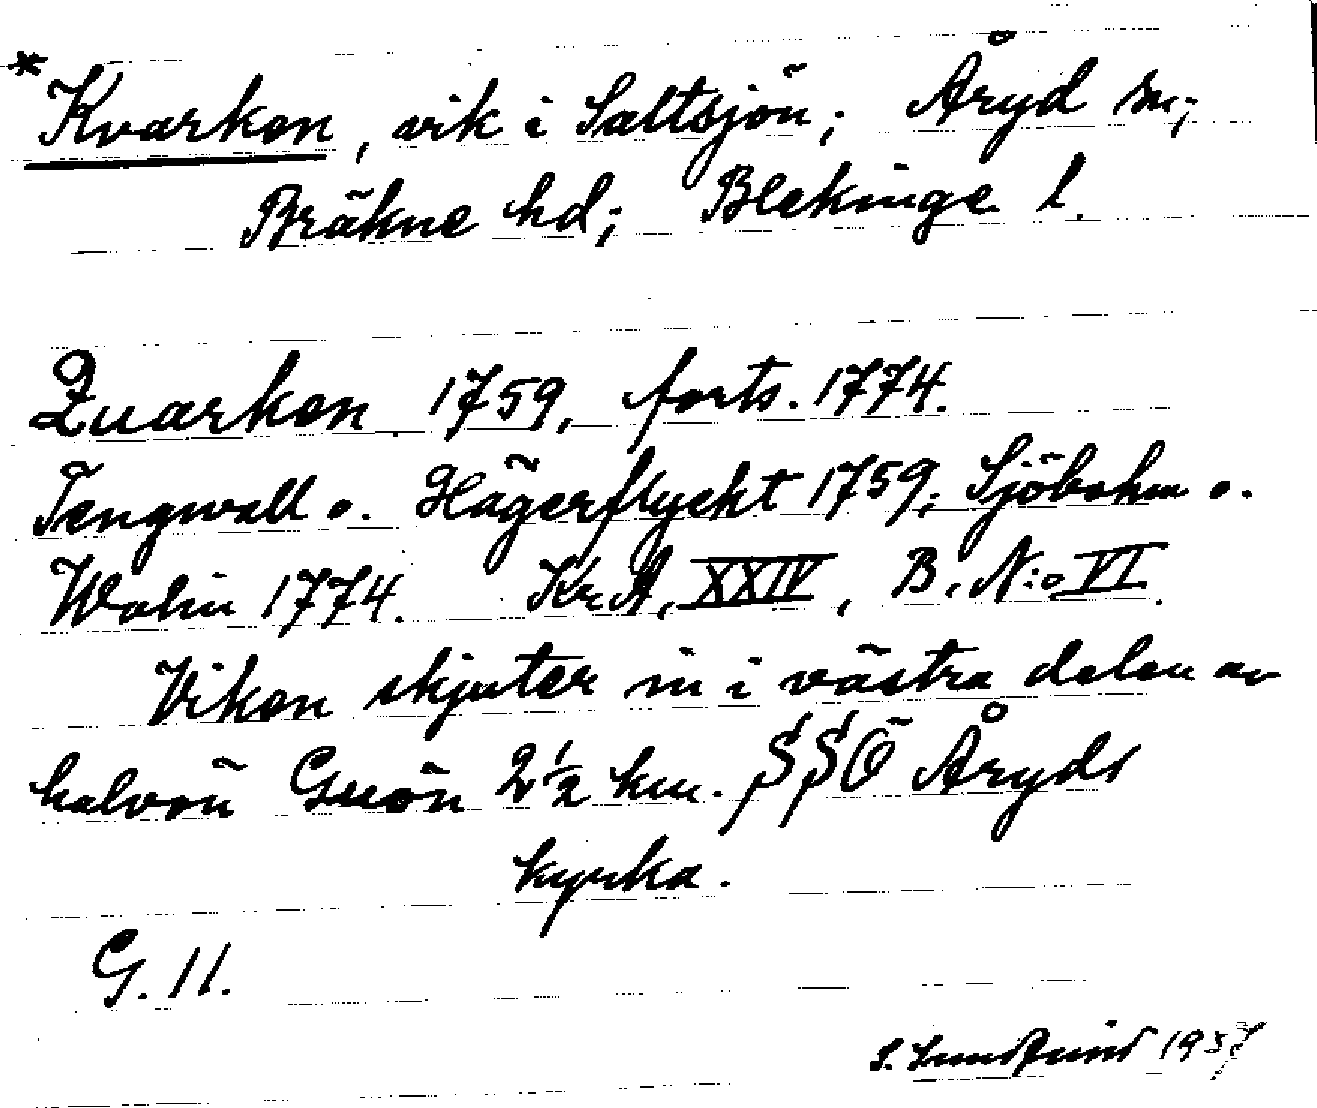 * Kvarken, vik i Saltsjön; Åryd sn;
Bräkne hd; Blekinge l.
Quarken 1759, forts. 1774.
Tengwall o. Hägerflycht 1759; Sjöbohm o.
Wohin 1774. KrA, XXIV, B. N:o VI.
Viken skjuter in i västra delen av
halvön Guön 2½ km. SSÖ Åryds
kyrka.
G. 11.
S. 1937